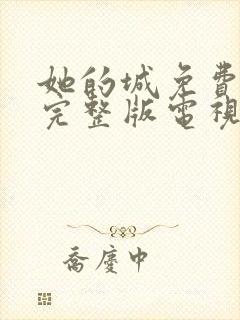 她的城免費
完整版電視
喬慶中